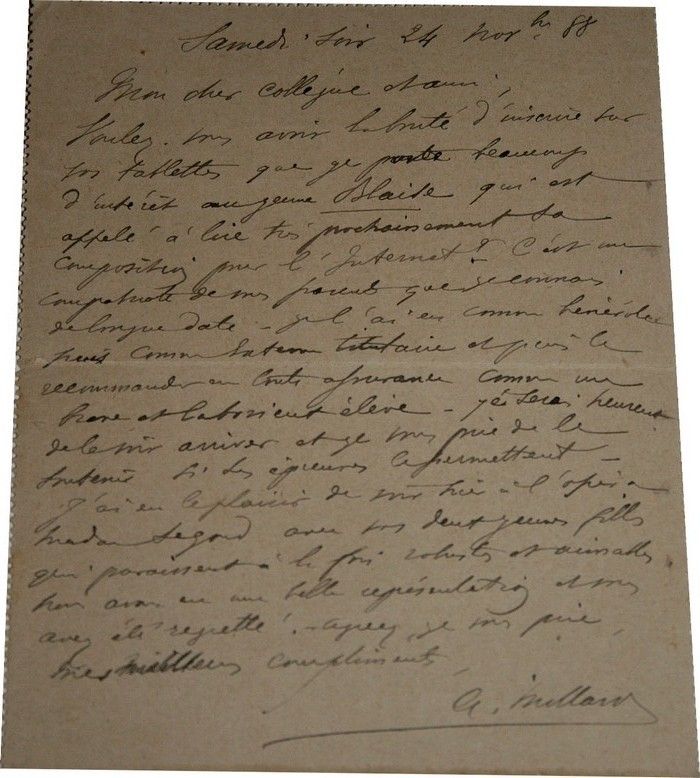 Samedi soir 24 Novbre 88
Mon cher collègue et ami,
Voulez-vous avoir la bonté d'inscrire sur
vos tablettes que je porte beaucoup
d'intérêt au jeune Blaise qui est
appelé à lire très prochainement sa
composition pour l'Internat? C'est un
compatriote de mes parents que je connais
de longue date - je l'ai eu comme bénévole
puis comme Externe titulaire et puis le
recommander en toute assurance comme un
brave et laborieux élève - je serai heureux
de le voir arriver et je vous prie de le
soutenir si ses épreuves le permettent -
J'ai eu le plaisir de voir hier à l'opéra
madame Segond avec vos deux jeunes filles
qui paraissent à la fois robustes et aimables
nous avons eu une belle représentation et vous
avez été regretté. - agréez, je vous prie,
mes meilleurs compliments
A. Millard